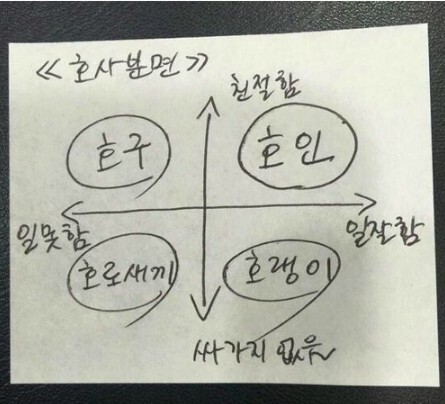 <<호사분면>>
친절함
호구
호인
일못함
일잘함
호로새끼
호랭이
싸가지 없음